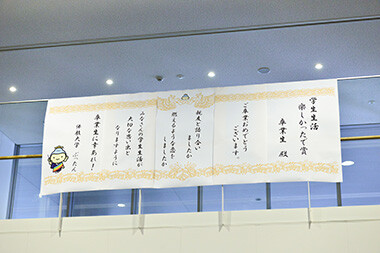 学生生活
楽しかったで賞
卒業生 殿
ご卒業おめでとう
ございます。
友と語り合い
ましたか
燃えるような恋を
しましたか
みなさんの学生生活が
大切な思い出と
なりますように
卒業生に幸あれ！
佛教大学